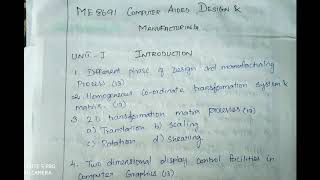 ME8691 COMPUTER AIDED DESIGN &
MANUFACTURING
UNIT - I INTRODUCTION
1. Different phase of Design and manufacturing
Process (13)
2. Homogeneous co-ordinate transformation system &
matrix. (13)
3. 2D transformation matrix processes (13)
a) Translation b) scaling
c) Rotation d) Shearing
4. Two dimensional display control facilities in
Computer Graphics (13)
CAMERA